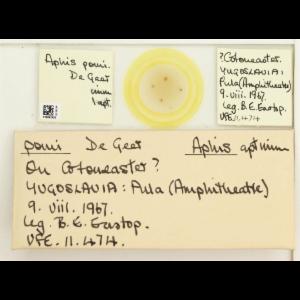 Aphis pomi.
De Geer
1 apt.
?Cotoneaster.
YUGOSLAVIA:
Pula (Amphitheatre)
9. viii. 1967.
leg. B. E. Eastop.
11.474
pomi De Geer Aphis
On Cotoneaster?
YUGOSLAVIA: Pula (Amphitheatre)
9. viii. 1967.
leg. B. E. Eastop.
11.474.